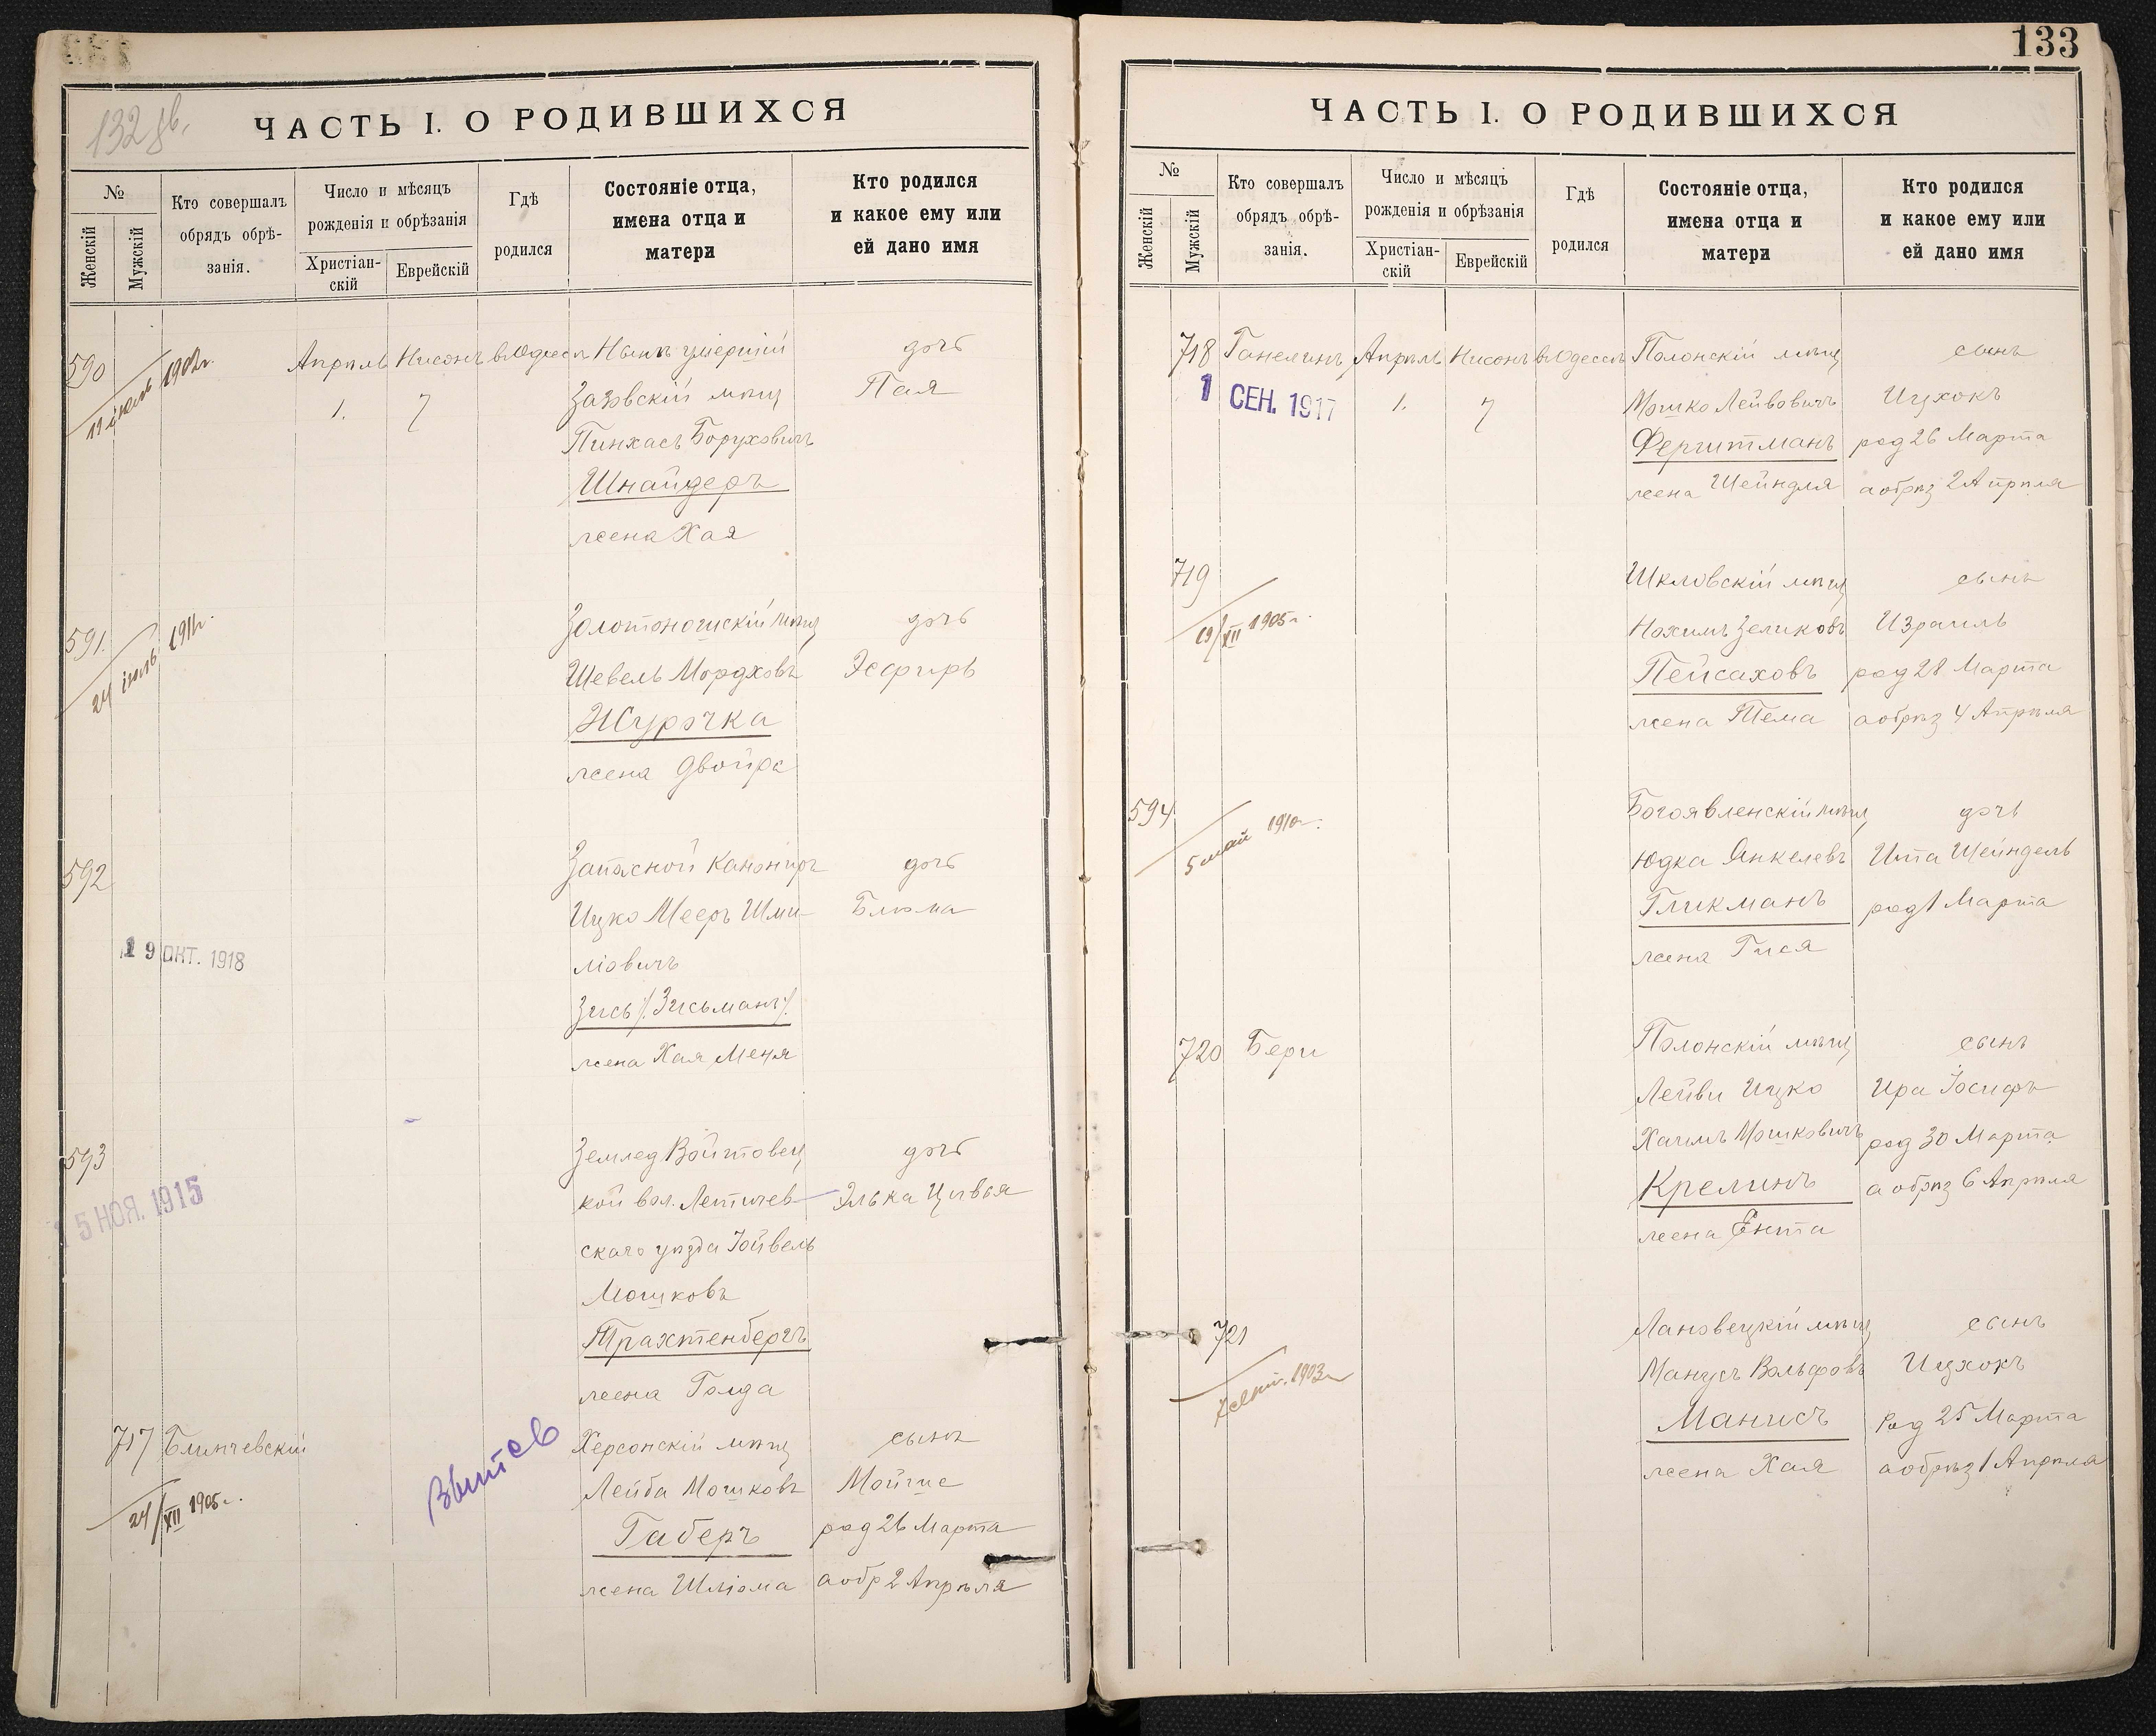 132 об.
ЧАСТЬ I. О РОДИВШИХСЯ
№
Женскій
Мужскій
Кто совершалъ
обрядъ обрѣ-
занія.
Число и мѣсяцъ
рожденія и обрѣзанія
Христіан-
скій
Еврейскій
Гдѣ
родился
Состояніе отца,
имена отца и
матери
Кто родился
и какое ему или
ей дано имя
590
Апрѣль Нисонъ в Одессѣ Нынѣ умершій дочь
1. 7 мѣщ Пая
Пинхасъ Боруховичъ
Шнайдеръ
жена Хая
591.
24 іюль 1911г.
Золотоношскій мѣщ дочь
Шевель Мордховъ Эсфирь
Журочка
жена Двойра
592
Запасной Канониръ дочь
Ицко Мееръ Шми- Блюма
19 ОКТ. 1918
ліовичъ
Зись /Зисьманъ/.
жена Хая Меня
593
Землед Войтовец дочь
кой вол. Летичев- Элька Цивья
15 НОЯ. 1915
скаго уѣзда Іойвель
Мошковъ
Трахтенбергъ
жена Голда
717 Блинчевскій
Херсонскій мѣщ сынъ
Лейба Мошковъ Мойше
24/XII 1905г.
Габеръ род 26 Марта
жена Шліома а обр 2 Апрѣля
133
ЧАСТЬ I. О РОДИВШИХСЯ
№
Женскій
Мужскій
Кто совершалъ
обрядъ обрѣ-
занія.
Число и мѣсяцъ
рожденія и обрѣзанія
Христіан-
скій
Еврейскій
Гдѣ
родился
Состояніе отца,
имена отца и
матери
Кто родился
и какое ему или
ей дано имя
718 Ганелинъ Апрѣль Нисонъ в Одессѣ Полонскій мѣщ сынъ
1 СЕН. 1917
1. 7 Мошко Лейбовичъ Ицхокъ
Ферштманъ род 26 Марта
жена Шейндля а обрѣз 2 Апрѣля
719
19/XII 1905г.
Шкловскій мѣщ сынъ
Нохимъ Зеликовъ Израиль
Пейсаховъ род 28 Марта
жена Тема а обрѣз 4 Апрѣля
594
5 май 1910г.
Богоявленскій мѣщ дочь
Юдка Янкелевъ Ита Шейндель
Гликманъ род 1 Марта
жена Гися
720 Бери
Полонскій мѣщ сынъ
Лейви Ицко Ира Іосифъ
Хаимъ Мошковичъ род 30 Марта
Крелинъ а обрѣз 6 Апрѣля
жена Ента
721
Лановецкій мѣщ сынъ
Манусъ Вольфовъ Ицхокъ
Манисъ род 25 Марта
жена Хая а обрѣз 1 Апрѣля